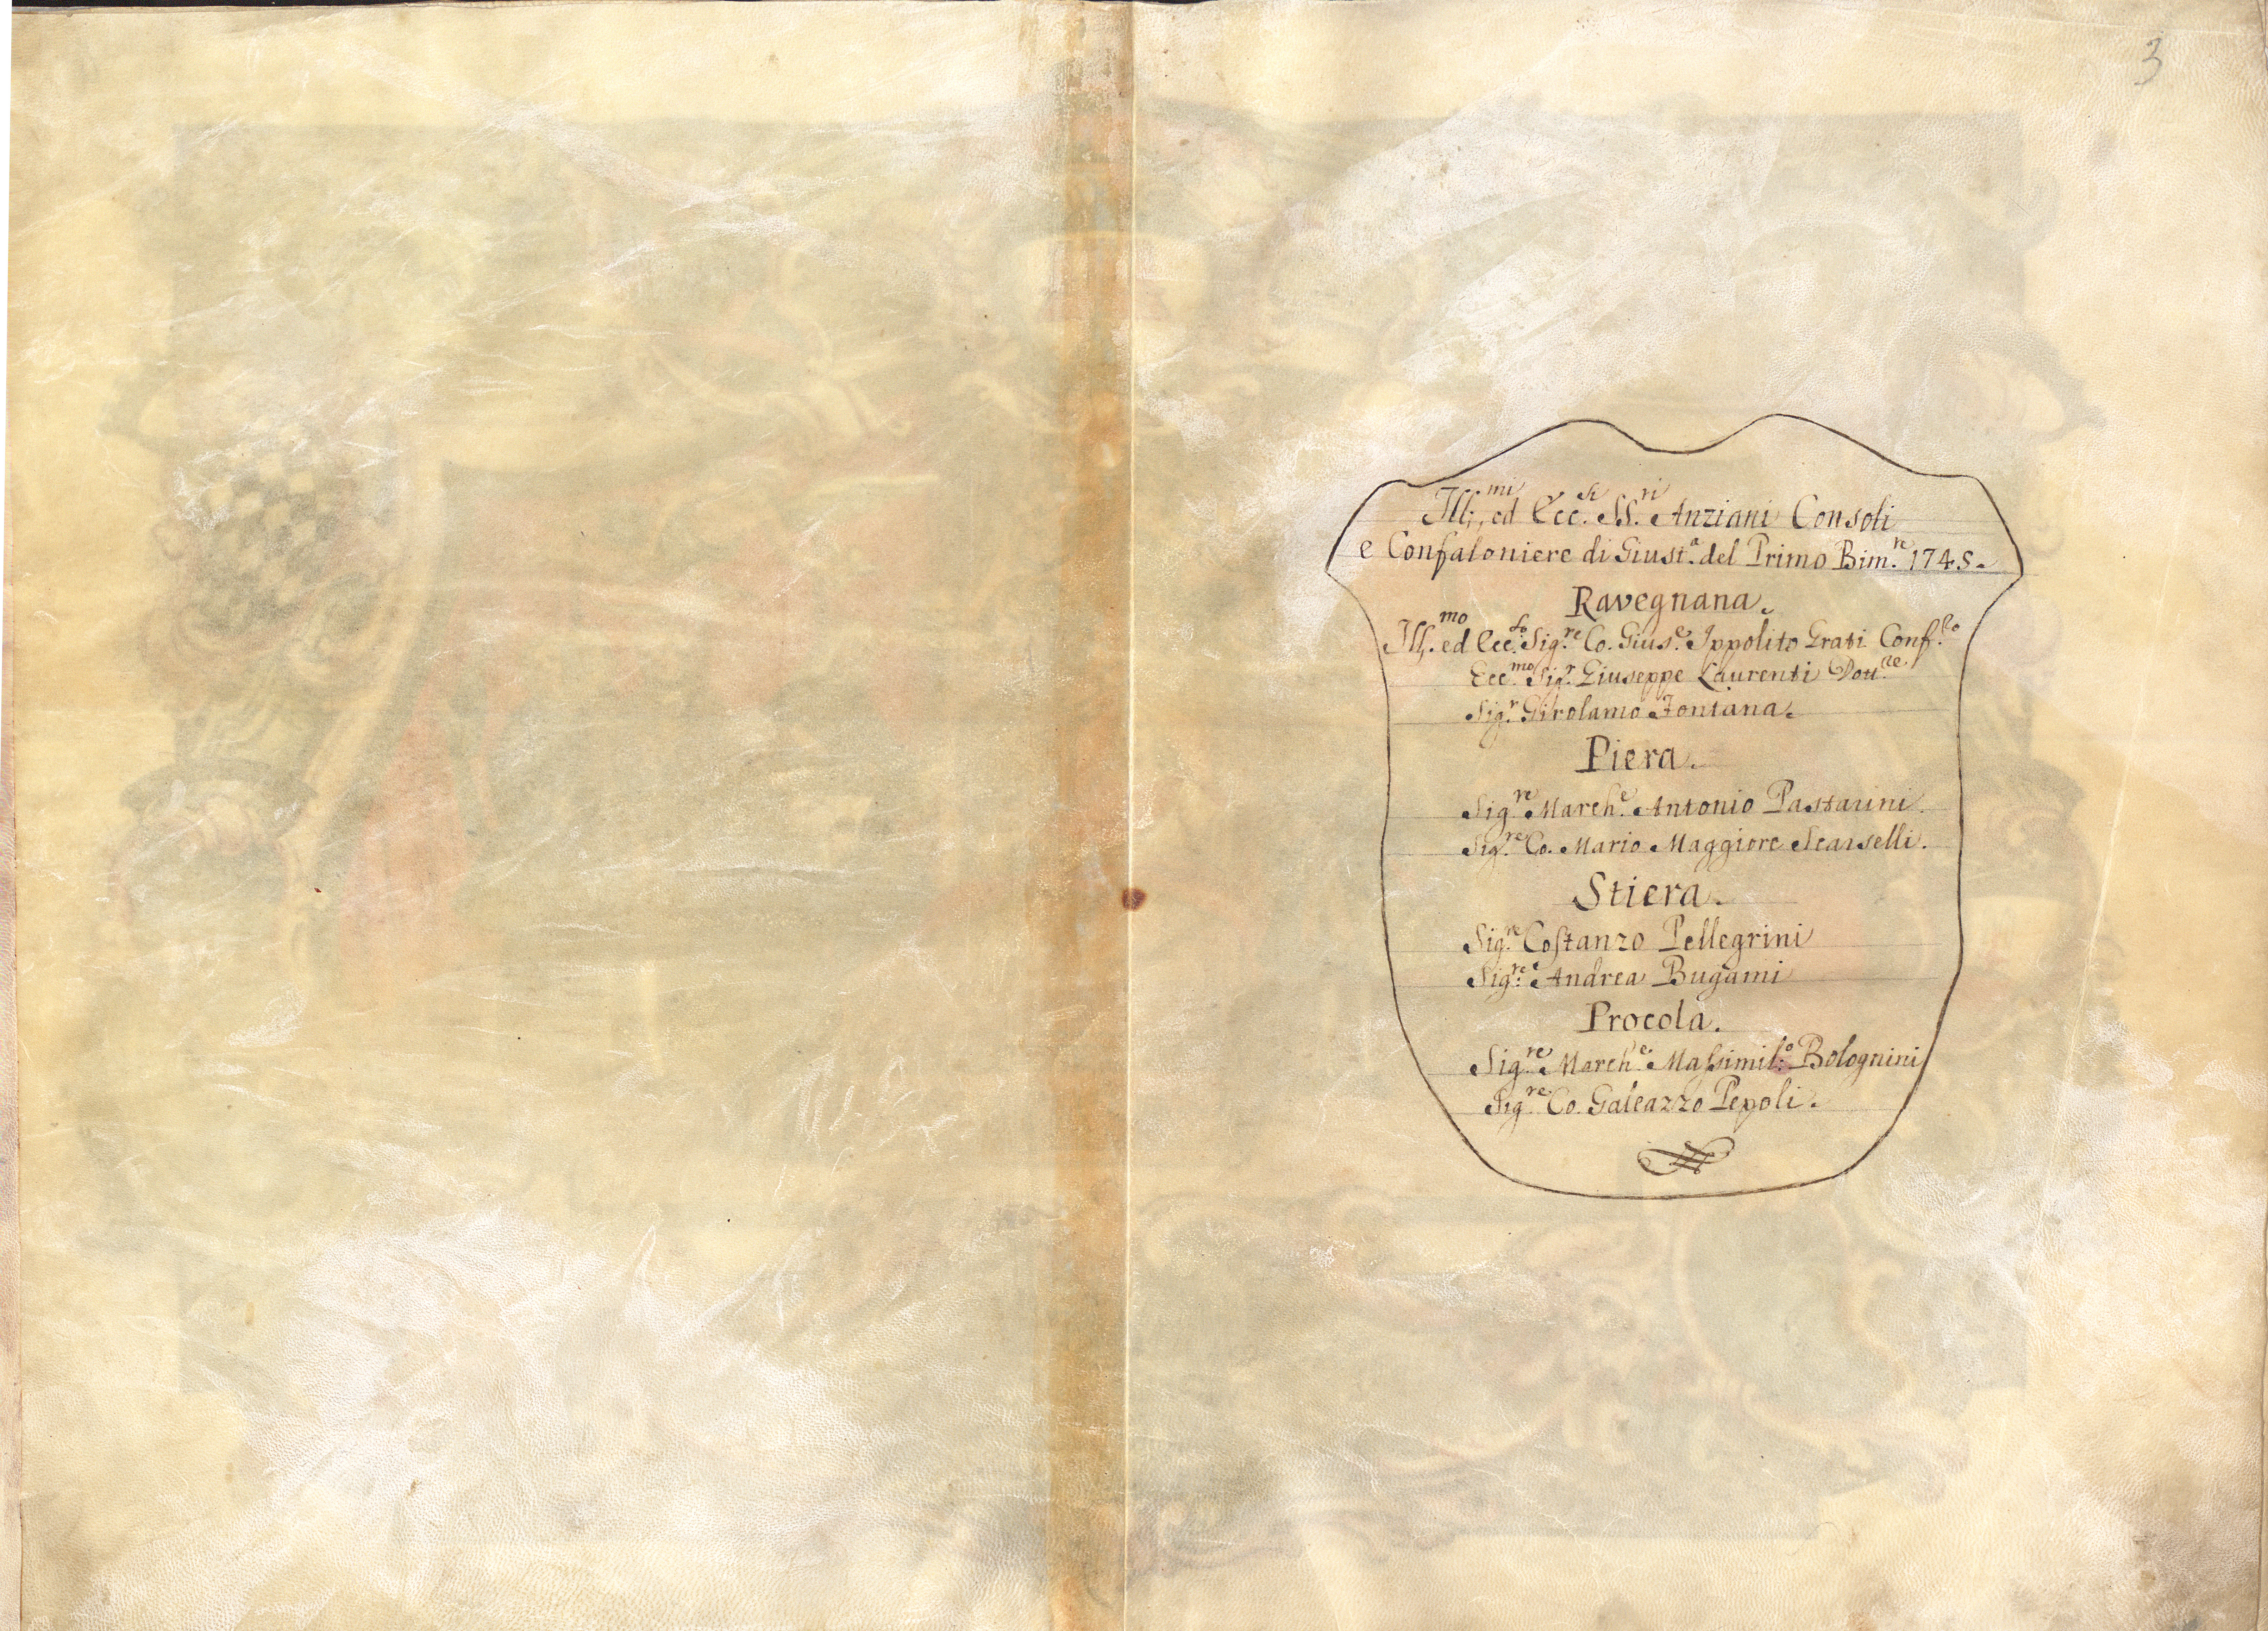 3
Ill:mi, ed Ecc.si SS.ri Anziani Consoli
e Confaloniere di Giust.a del Primo Bim.re 1745.
Ravegnana.
Ill.mo ed Ecc.so Sig.re Co. Gius.e Ippolito Grati Conf.re
Ecc.mo Sig.r Giuseppe Laurenti Dott.re
Sig.r Girolamo Fontana.
Piera.
Sig.re March.e Antonio Pastarini.
Sig.re Co. Mario Maggiore Scarselli.
Stiera.
Sig.re Costanzo Pellegrini
Sig.re Andrea Bugami
Procola.
Sig.re March.e Massimil:o Bolognini
Sig.re Co. Galeazzo Pepoli.